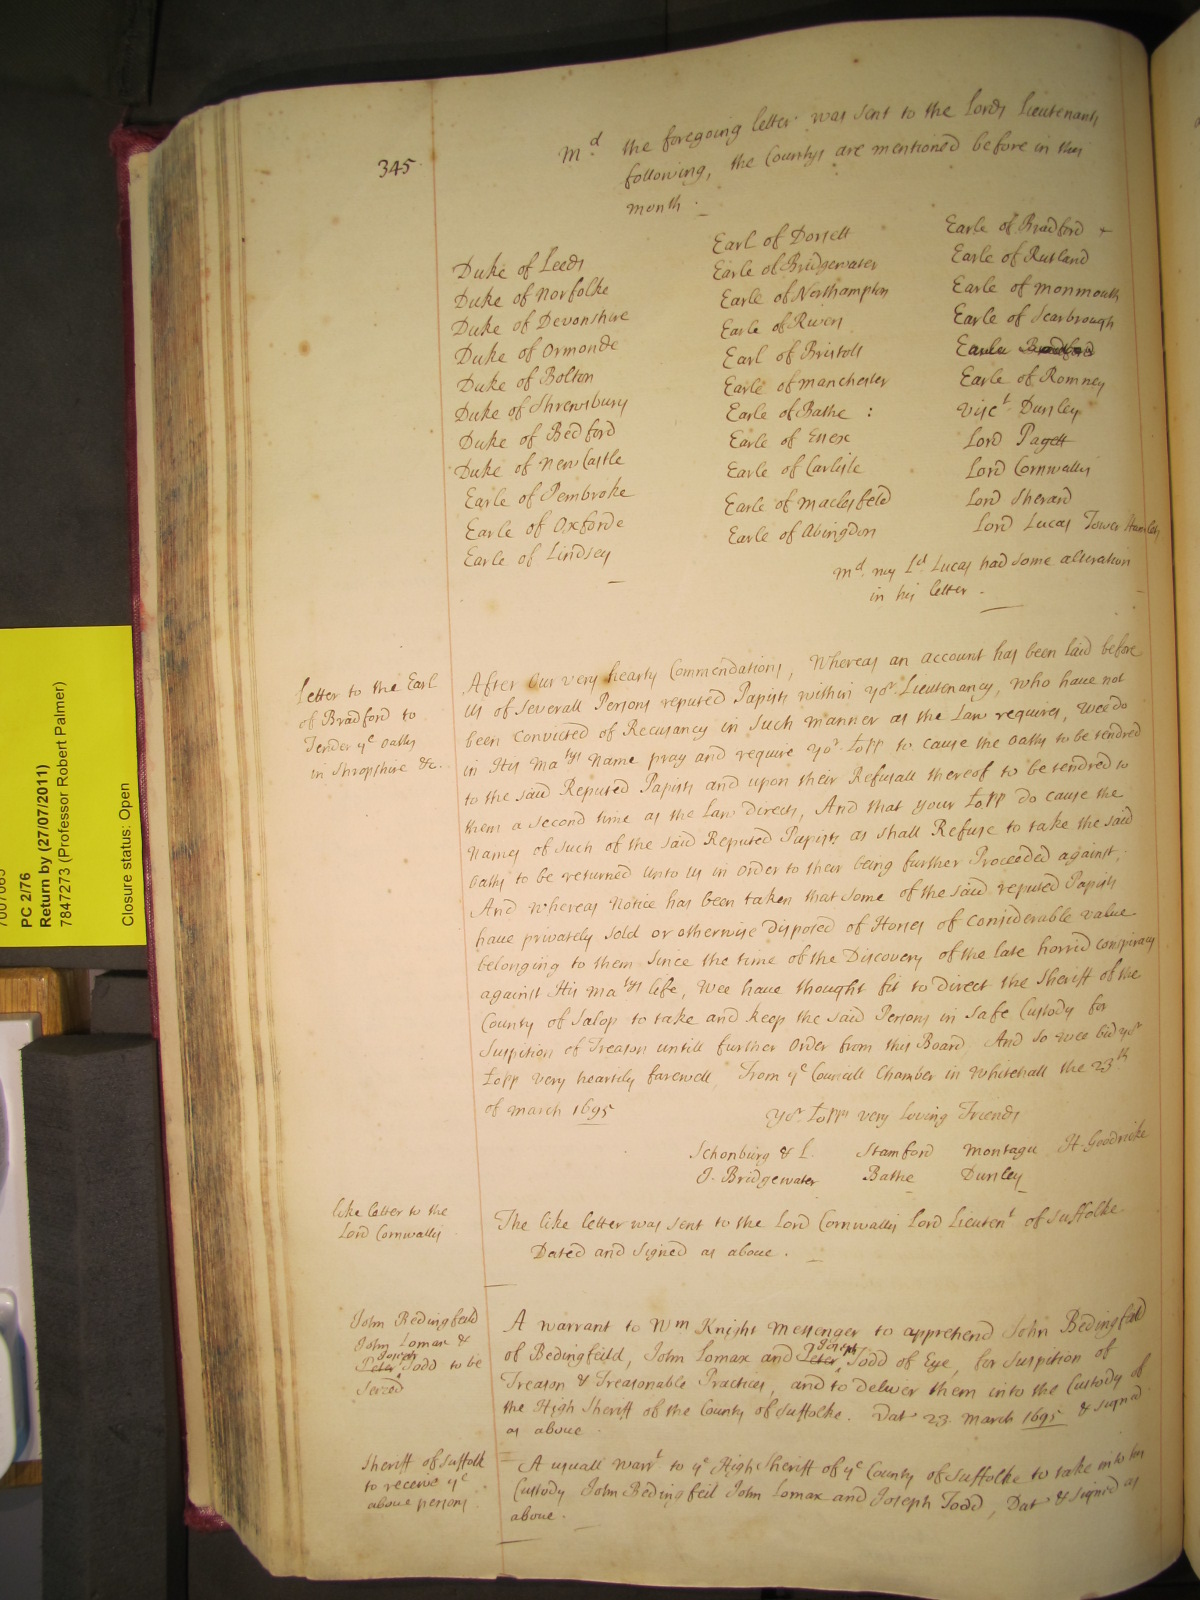 345
Md. the foregoing letter was sent to the Lords Lieutenants
following, the Countys are mentioned before in this
month.
Duke of Leeds
Duke of Norfolke
Duke of Devonshire
Duke of Ormonde
Duke of Bolton
Duke of Shrewsbury
Duke of Bedford
Duke of New Castle
Earle of Pembroke
Earle of Oxforde
Earle of Lindsey
Earl of Dorsett
Earle of Bridgewater
Earle of Northampton
Earle of Rivers
Earl of Bristoll
Earle of Manchester
Earle of Bathe :
Earle of Essex
Earle of Carlisle
Earle of Maclesfeld
Earle of Abingdon
Earle of Bradford +
Earle of Rutland
Earle of Monmouth
Earle of Scarbrough
Earle Bradford
Earle of Romney
Visct Dursley
Lord Pagett
Lord Cornwallis
Lord Sherard
Lord Lucas Tower Hamlets
Md. my Ld. Lucas had some alteration
in his letter.
Letter to the Earl
of Bradford to
Tender ye oaths
in Shropshire &c.
After Our very hearty Commendations, Whereas an account has been laid before
us of severall Persons reputed Papists within yor Lieutenancy, who have not
been Convicted of Recusancy in such manner as the Law requires, Wee do
in His Matys Name pray and require yor Lopp to cause the oaths to be tendred
to the said Reputed Papists and upon their Refusall thereof to be tendred to
them a second time as the Law directs, And that your Lopp do cause the
Names of such of the said Reputed Papists as shall Refuse to take the said
oaths to be returned unto us in order to their being further Proceeded against,
And whereas Notice has been taken that some of the said reputed Papists
have privately sold or otherwise disposed of Horses of considerable value
belonging to them since the time of the Discovery of the late horrid conspiracy
against His Matys life, Wee have thought fit to direct the Sheriff of the
County of Salop to take and keep the said Persons in safe Custody for
suspition of Treason untill further Order from this Board And so wee bid yor
Lopp very heartily farewell, From ye Councill Chamber in Whitehall the 23th
of March 1695
Yor Lopps very loving Friends
Schonburg & L. Stamford Montagu H. Goodricke
J. Bridgewater Bathe Dursley
like letter to the
Lord Cornwallis
The like letter was sent to the Lord Cornwallis Lord Lieutent of Suffolke
Dated and signed as above.
John Bedingfeild
John Lomax &
Joseph
Peter Todd to be
seized
A warrant to Wm Knight Messenger to apprehend John Bedingfeild
Joseph
of Bedingfeild, John Lomax and Peter Todd of Eye, for suspition of
Treason & Treasonable Practices, and to deliver them into the Custody of
the High Sheriff of the County of Suffolke. Dat 23 March 1695 & signed
as above
Sheriff of Suffolk
to receive ye
above persons
A usuall Warrt to ye High Sheriff of ye County of Suffolke to take into his
Custody John Bedingfeil John Lomax and Joseph Todd, Dat & signed as
above.
PC 2/76
Return by (27/07/2011)
7847273 (Professor Robert Palmer)
Closure status: Open